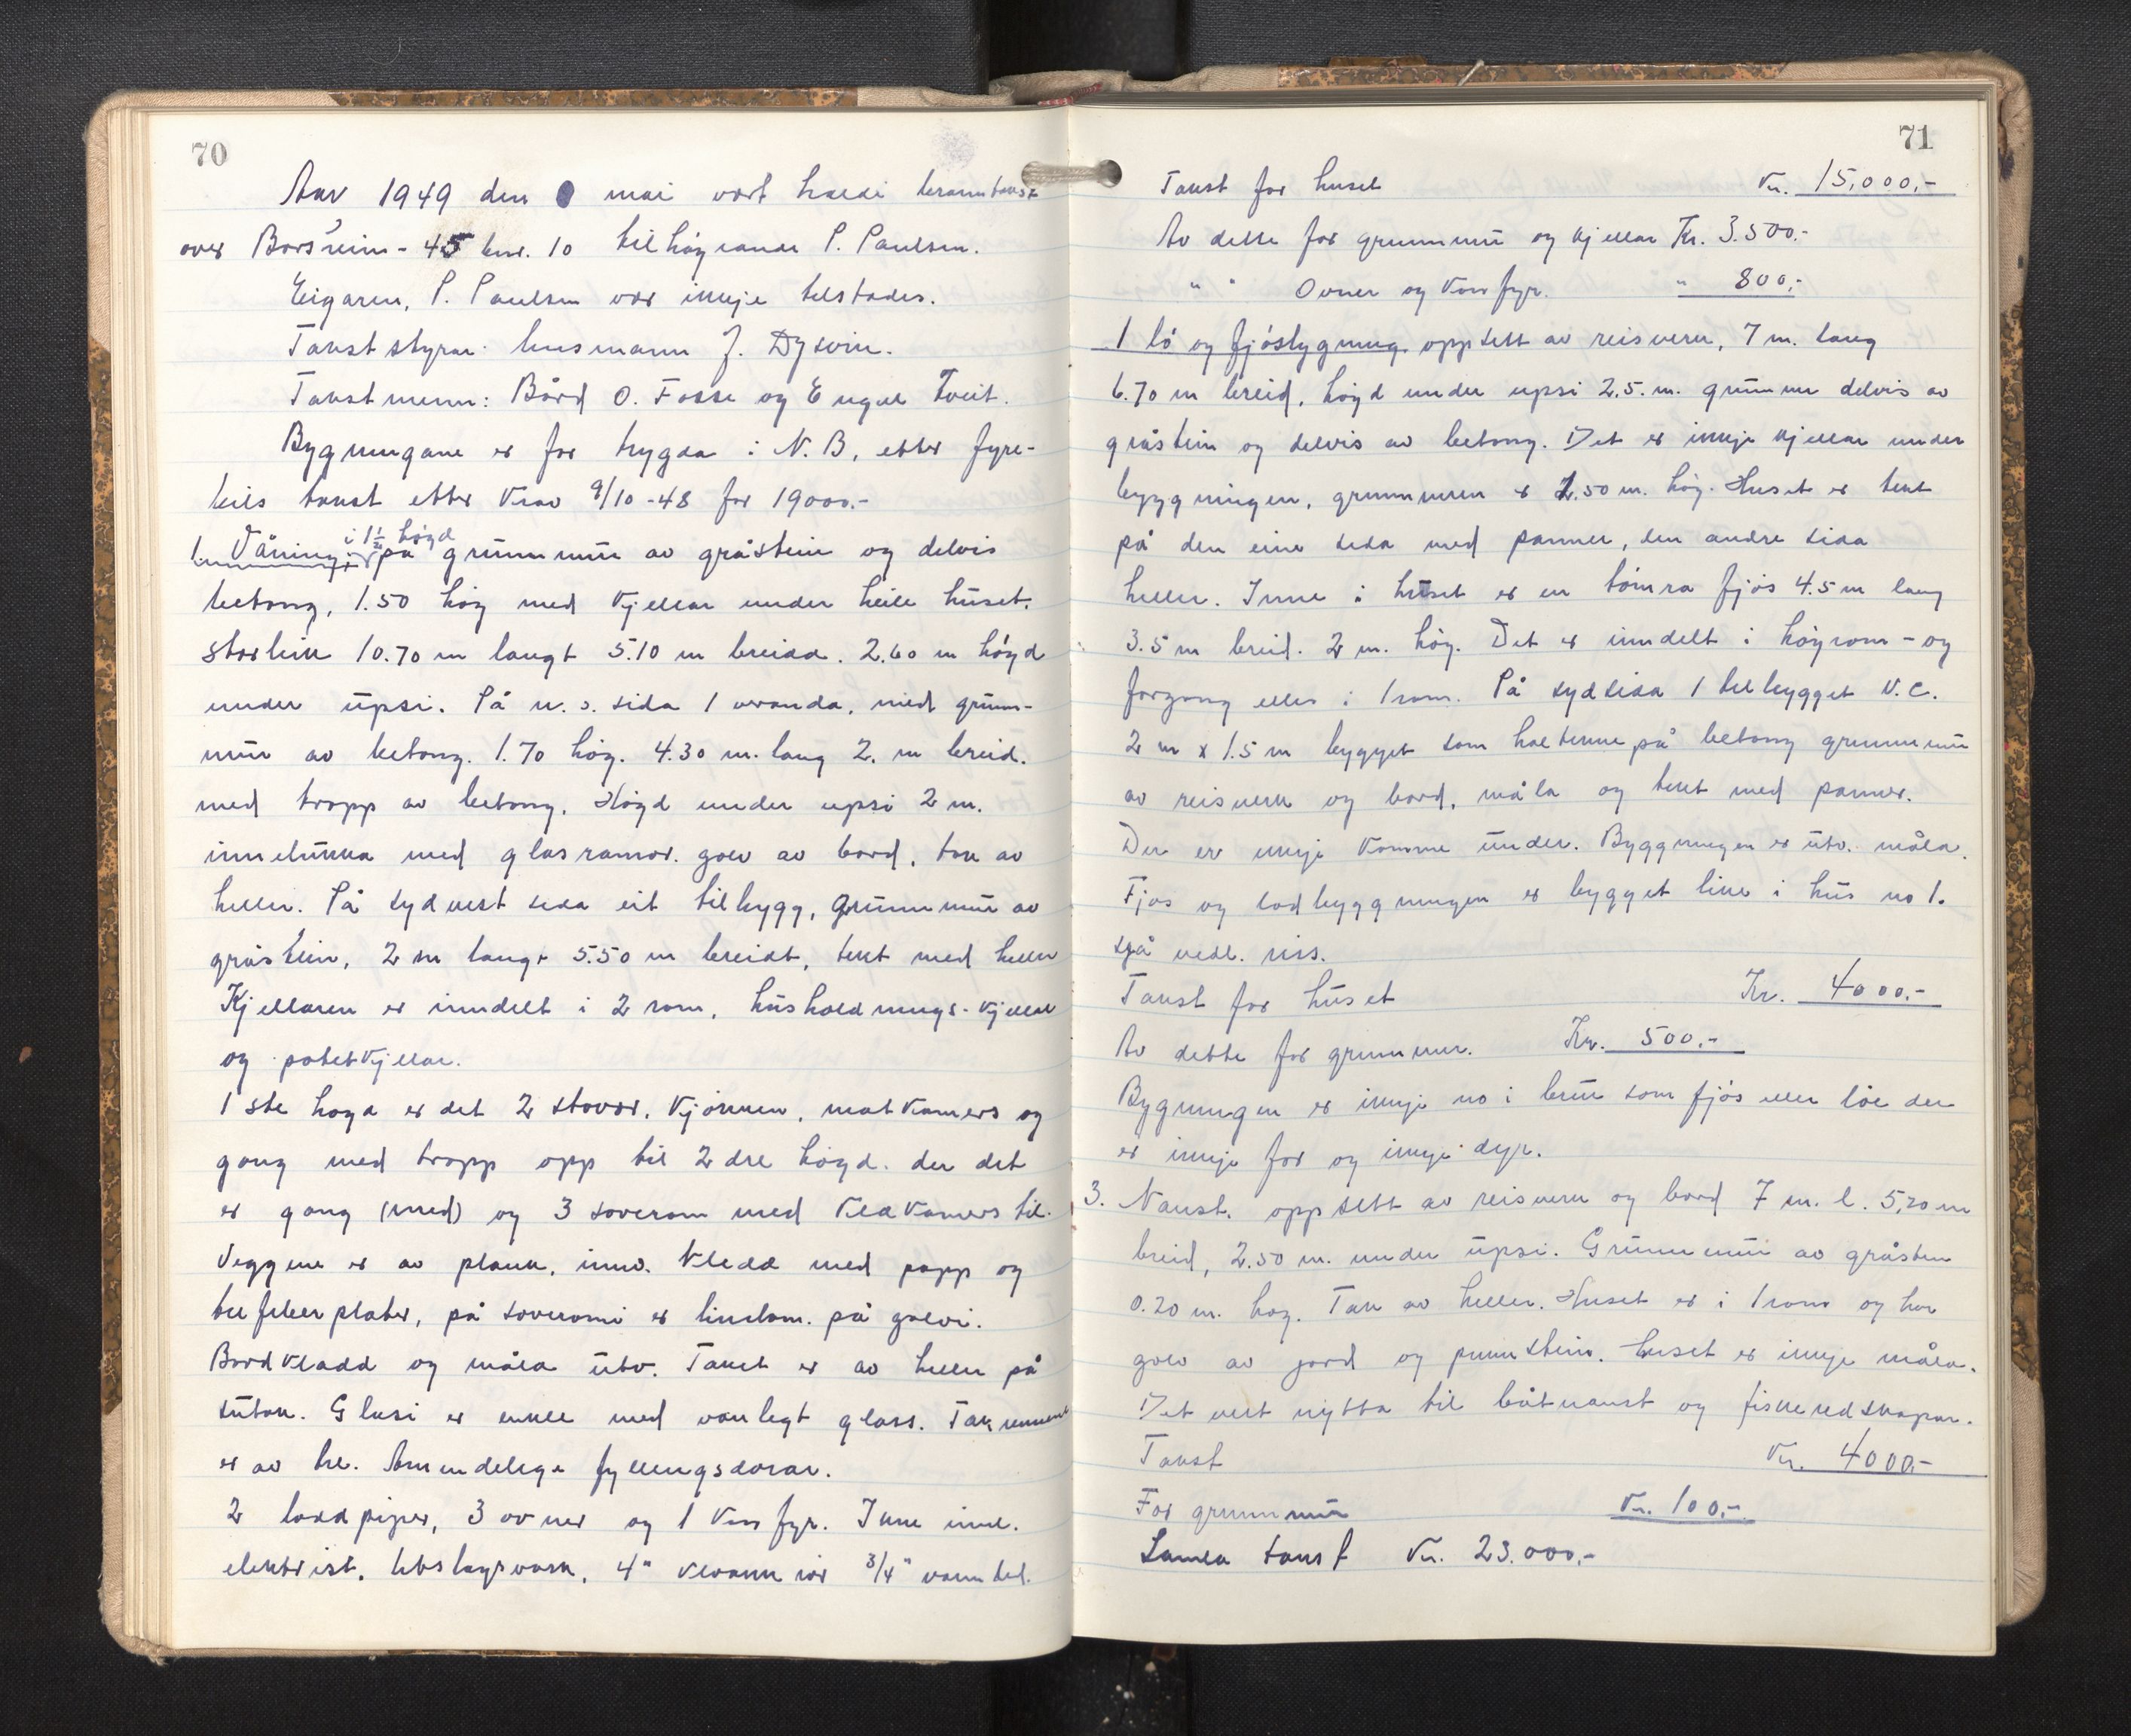 70
Aar 1949 den mai vart haldi branntakst
over Borsheim - 45 bnr. 10 tilhøyrande P. Paulsen.
Eigaren, P. Paulsen var ikkje tilstades.
Takststyrar: husmann J. Dysvin.
Takstmenn: Bård O. Fosse og Engel Tveit.
Bygningane er før trygda i N. B, etter fyre-
bils takst etter krav 9/10-48 for 19000.-
1. Våning: i 1½ høgd på grunnmur av gråstein og delvis
betong, 1.50 høg med kjellar under heile huset.
storleik 10.70 m langt 5.10 m breidd. 2.60 m høgd
under upsi. På n. ø. sida 1 veranda, med grunn-
mur av betong. 1.70 høg. 4.30 m. lang 2. m breid.
med tropp av betong. Høgd under upsi 2 m.
innelukka med glasramor. golv av bord, tak av
heller. På sydvest sida eit tilbygg, grunnmur av
gråstein, 2 m langt 5.50 m breidt, tekt med heller
Kjellaren er inndelt i 2 rom, hushaldnings-kjellar
og potetkjellar.
1 ste høgd er det 2 stover, kjøkken, matkamers og
gang med tropp opp til 2dre høgd. der det
er gang (med) og 3 soverom med kledkamers til.
Veggene er av plank, innv. kledd med papp og
trefiberplater, på soveromi er linolom. på golvi.
Bordkledd og måla utv. Taket er av heller på
sutak. Glasi er enkle med vanlegt glass. Takrennene
er av tre. Almindelige fyllingsdører.
2 loddpiper, 3 ovner og 1 komfyr. Inne innl.
elektrisk, utslagsvask, 4" kloakk rør 3/4" vannled.
71
Takst for huset Kr. 15,000,-
Av dette for grunnmur og kjellar Kr. 3.500.-
" " Ovner og komfyr. " 800,-
1 lø og fjøsbygning. oppsett av reisverk, 7 m. lang
6.70 m breid, høgd under upsi 2.5. m. grunnmur delvis av
gråstein og delvis av betong. Det er ikkje kjellar under
byggningen, grunnmuren er 2.50 m. høg. Huset er tekt
på den eine sida med panner, den andre sida
heller. Inne i huset er en tømra fjøs 4.5 m lang
3.5 m breid. 2 m. høg. Det er inndelt i høyrom - og
forgang elles i 1 rom. På sydsida 1 tilbygget V.C.
2 m x 1.5 m bygget som på betong grunnmur
av reisverk og bord, måla og tekt med panner.
Der er ikkje komme under. Byggningen er utv. måla.
Fjos og lodbyggningen er bygget like i hus no 1.
sjå vedl. riss.
Takst for huset Kr. 4000.-
Av dette for grunnmur. Kr. 500.-
Bygningen er ikkje no i bruk som fjøs eller løe der
er ikkje for og ikkje dyr.
3. Naust. oppsett av reisverk og bord 7 m. l. 5,20 m
breid, 2.50 m. under upsi. Grunnmur av gråsten
0.20 m. høg. Tak av heller. Huset er i 1 rom og har
golv av jord og pukkstein. huset er ikkje måla.
Det vert nytta til båtnaust og fiskereidskapar.
Takst Kr. 4000.-
For grunnmur Kr. 100.-
Samla takst Kr. 23.000,-